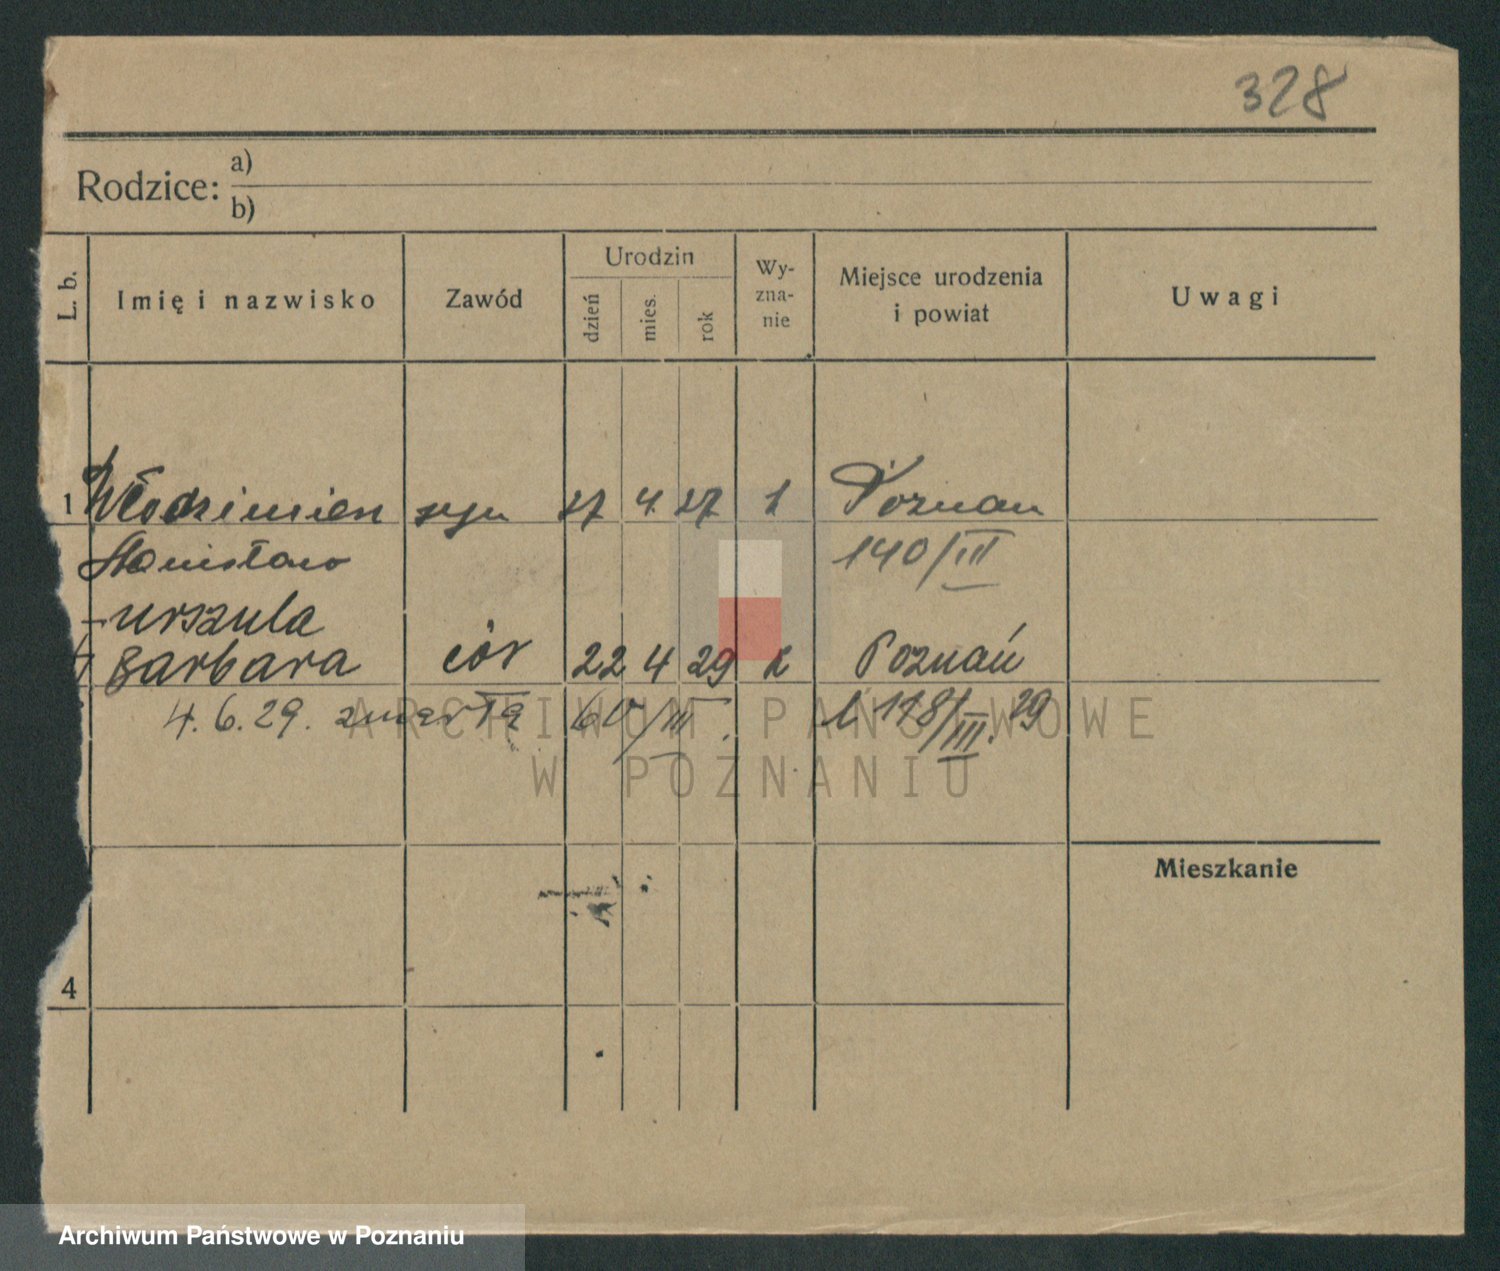 328
Rodzice: a)
b)
L. b. Imię i nazwisko Zawód Urodzin dzień mies. rok Wy-zna-nie Miejsce urodzenia i powiat Uwagi
1 Włodzimierz syn 27 4. 27 k Poznan
Stanisław 140/III
Urszula
Barbara cór 22 4 29 k Poznań
4. 6. 29. zmarła /III. 1178/III. 29
ARCHIWUM PAŃSTWOWE
W POZNANIU
Mieszkanie
4
Archiwum Państwowe w Poznaniu